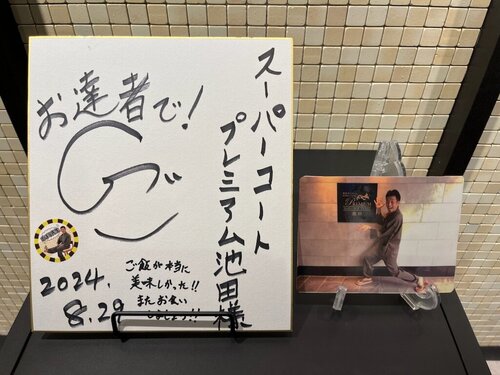 スーパーコート
プレミアム池田様
お達者で!
ご飯が本当に
美味しかった!!
またお会い
しましょう!!
2024.
8.29